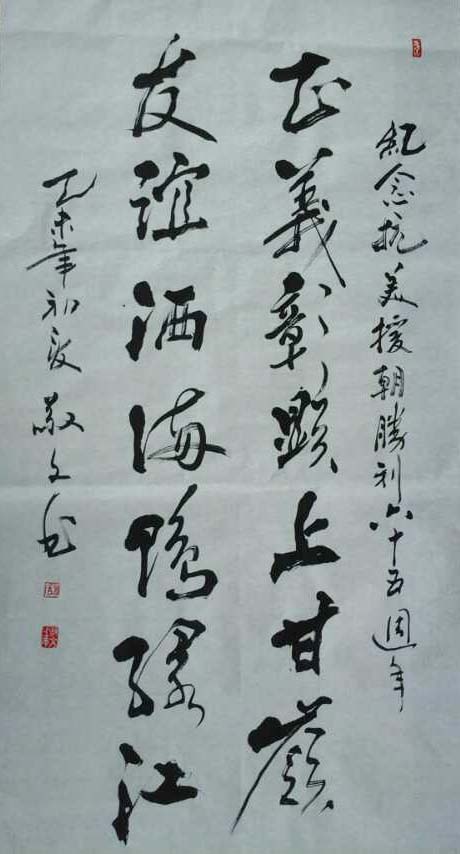 紀念抗美援朝勝利六十五週年
正義彰顯上甘嶺
友誼洒海鴨綠江
乙未年初夏敬文書